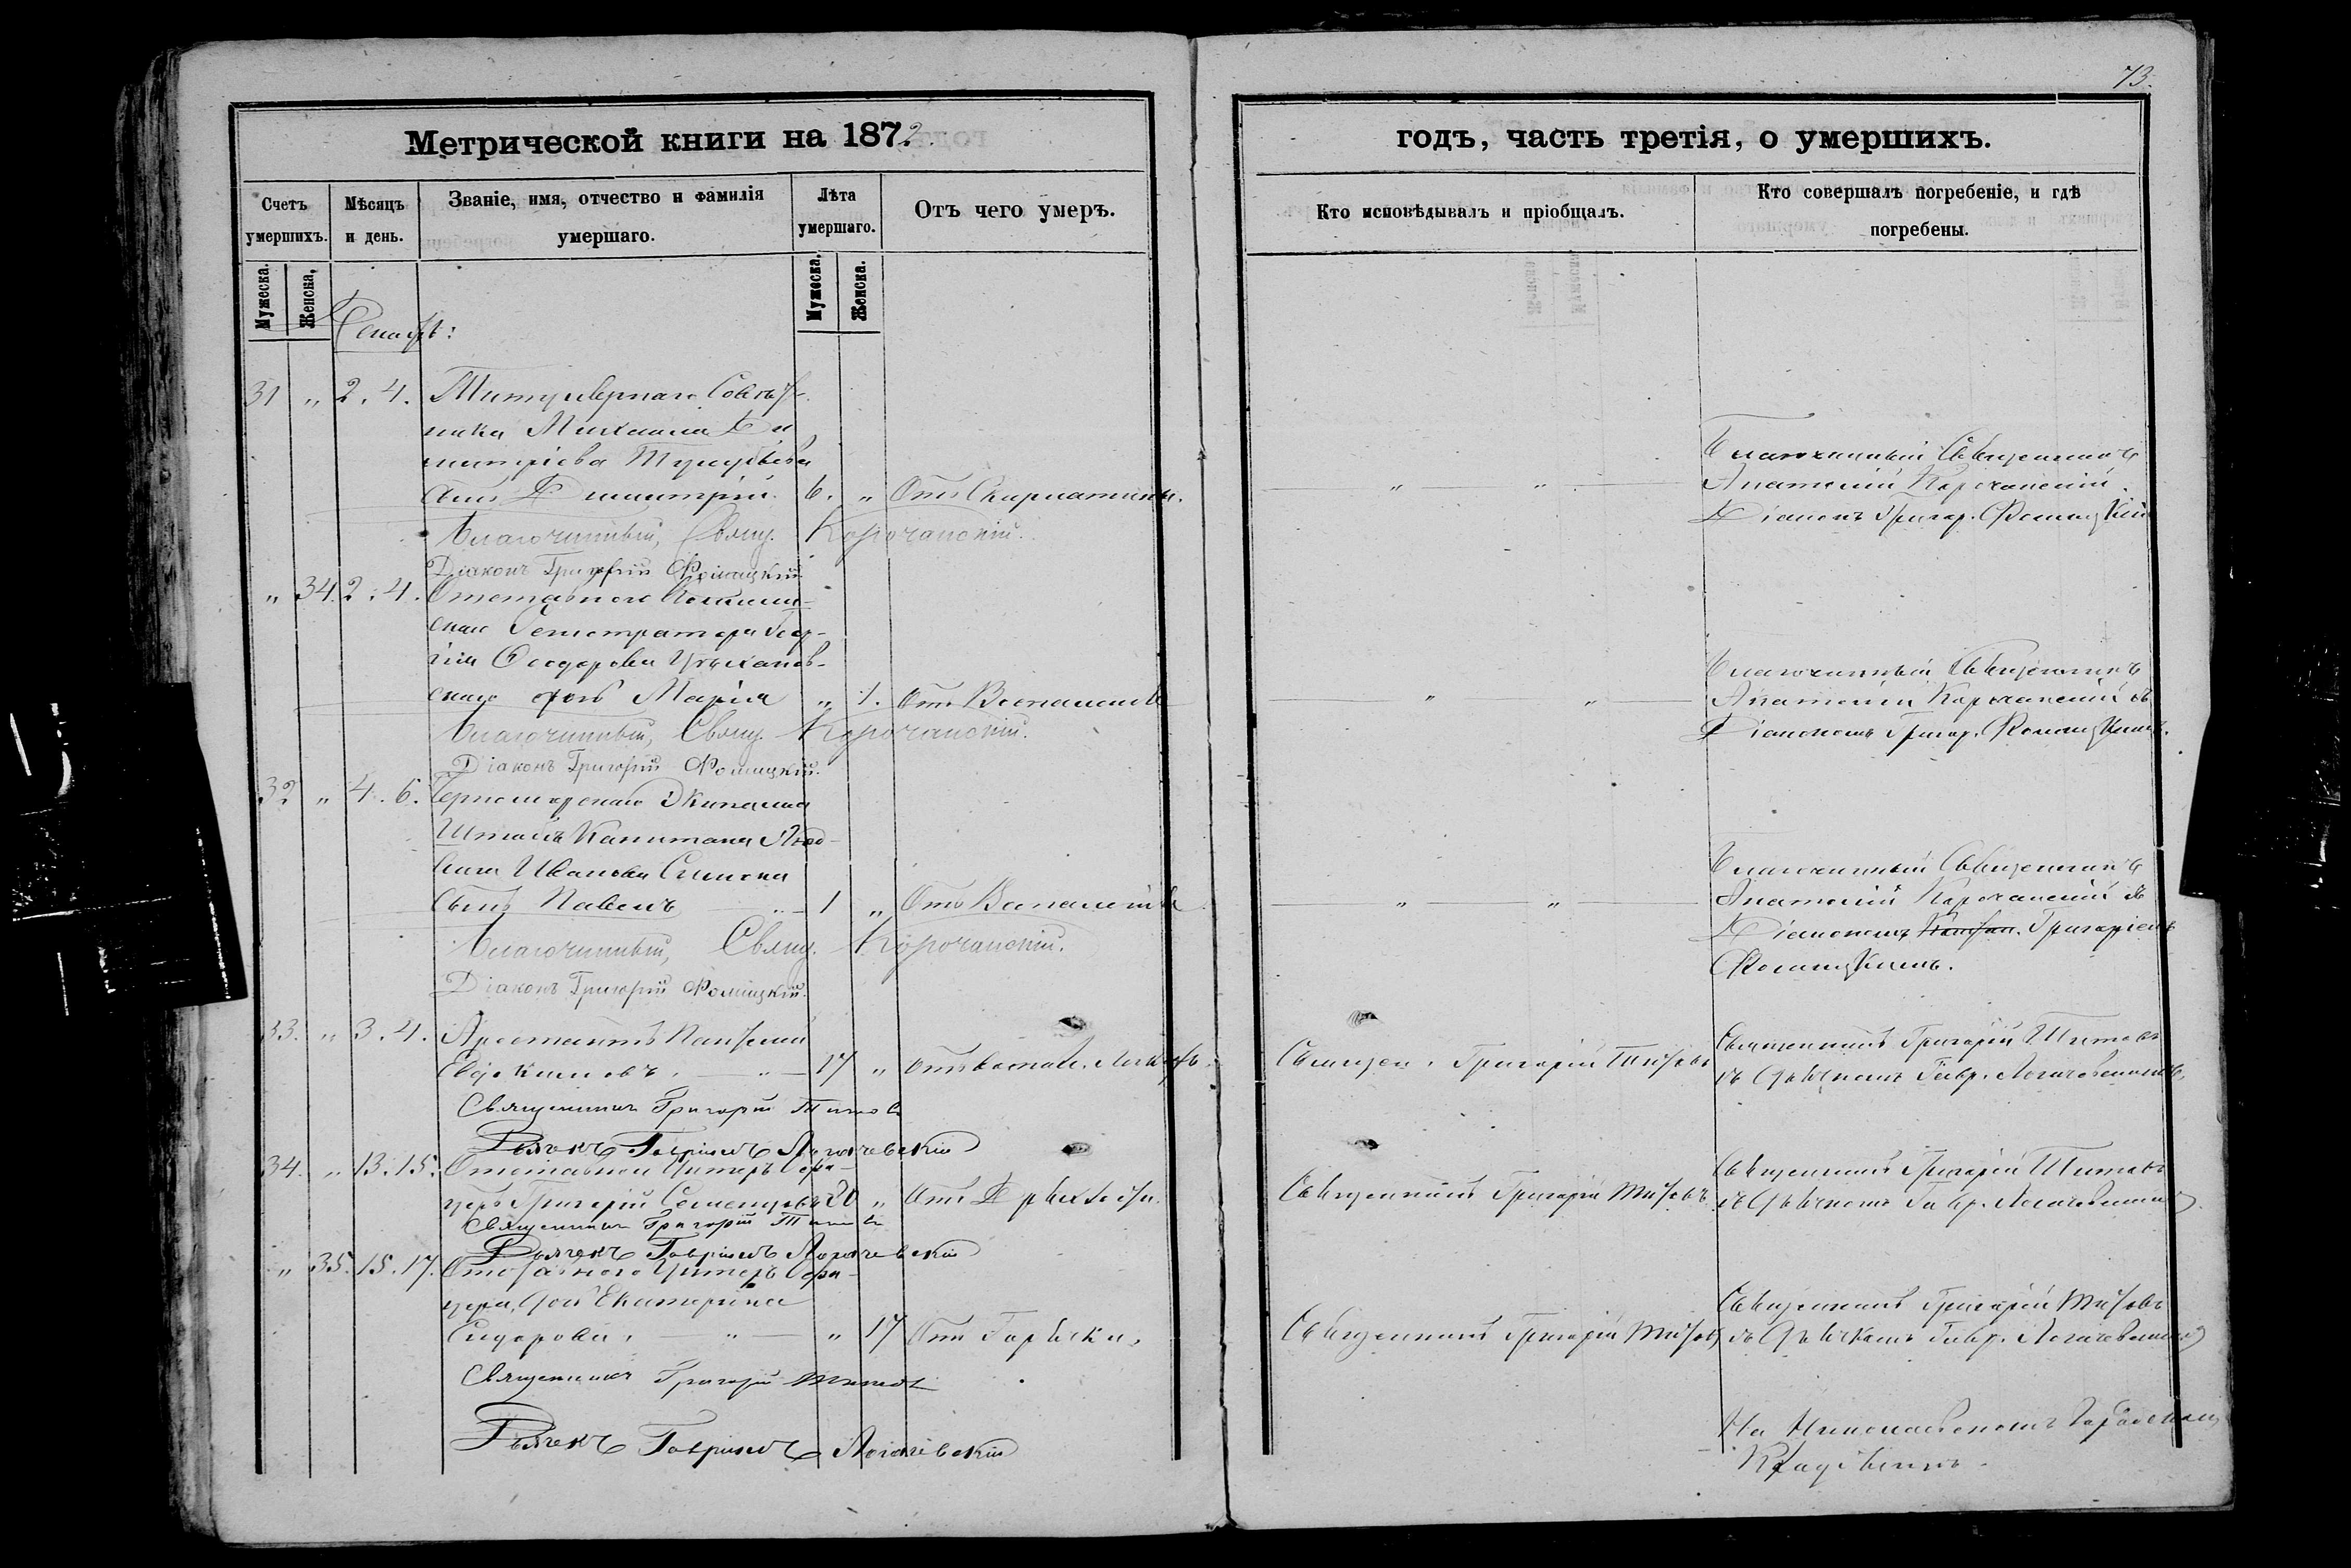 73.
Метрической книги на 1872
годъ, часть третія, о умершихъ.
Счетъ умершихъ.
Мѣсяцъ и день.
Званіе, имя, отчество и фамилія умершаго.
Лѣта умершаго.
Отъ чего умеръ.
Кто исповѣдывалъ и пріобщалъ.
Кто совершалъ погребеніе, и гдѣ погребены.
Мужеска.
Женска.
Мужеска.
Женска.
31 „ 2. 4. Титулярнаго Совѣт
ника Михаила Ди
митріева
сынъ Димитрій. 6. „ Отъ Скарлатины.
Благочинный Священникъ
Анатолій Корочанскій.
Діаконъ Григор. Фомицкій
Благочинный, Свящ. Корочанскій.
Діаконъ Григорій Фомицкій
„ 34. 2. 4. Отставного Коллеж-
скаго Регистратора Геор-
гія Ѳеодорова Цѣханов-
скаго дочь Марія „ 1. Отъ Воспаленія
Благочинный Священникъ
Анатолій Корочанскій съ
Діакономъ Григор. Фомицкимъ.
Благочинный, Свящ. Корочанскій.
Діаконъ Григорій Фомицкій.
32 „ 4. 6. Черноморскаго Экипажа
Штабсъ Капитана
Ивана
сынъ Павелъ „ 1 „ Отъ Воспаленія
Благочинный Священникъ
Анатолій Корочанскій съ
Діакономъ Григоріемъ
Фомицкимъ.
Благочинный, Свящ. Корочанскій.
Діаконъ Григорій Фомицкій.
33. „ 3. 4. Арестантъ
Евдокимовъ. „ 17 „ отъ воспал. легкихъ.
Священ. Григорій Титовъ
Священникъ Григорій Титовъ
съ Дьячкомъ Гавр. Логачевскимъ
Священникъ Григорій Титовъ
Дьячекъ Гавріилъ Логачевскій
34. „ 13. 15. Отставной Унтеръ Офи-
церъ Григорій „ Отъ Дряхлости.
Священникъ Григорій Титовъ
Священникъ Григорій Титовъ
съ Дьячкомъ Гавр. Логачевскимъ
Священникъ Григорій Титовъ
Дьячекъ Гавріилъ Логачевскій
„ 35. 15. 17. Отставного Унтеръ Офи-
цера, дочь Екатерина
Сидорова. „ „ 17 Отъ Горячки.
Священникъ Григорій Титовъ
Священникъ Григорій Титовъ
съ Дьячкомъ Гавр. Логачевскимъ
Священникъ Григорій Титовъ
Дьячекъ Гавріилъ Логачевскій
На Николаевскомъ Городскомъ
Кладбищѣ.